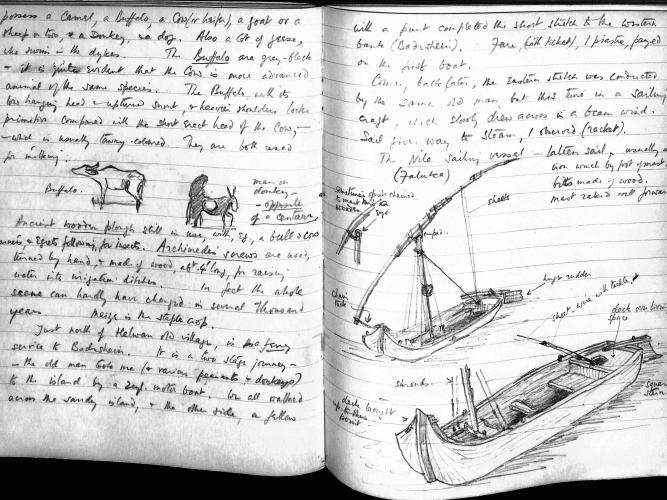 possess a Camel, a Buffalo, a Cow (or heifer), a goat or a
sheep or two, & a Donkey, & a dog. Also a lot of geese,
who swim in the dykes. The Buffalo are grey-black
- it is quite evident that the Cow is more advanced
animal of the same species. The Buffalo, with its
low hanging head & upturned snout & heavier shoulders looks
primitive compared with the short erect head of the Cow, -
- which is usually tawny-coloured. They are both used
for milking.
Buffalo.
man on
donkey -
- opposite
of a centaur,
Ancient wooden plough still in use, with, eg, a bull & cow
& Egrets following, for insects. Archimedes screws are used,
turned by hand, & made of wood, abt long, for raising
water into irrigation ditches. In fact the whole
scene can hardly have changed in several thousand
years. Maize is the staple crop.
Just north of Helwan old village, is a ferry
service to Badrshein. It is a two stage journey -
- the old man took me (& various peasants & donkeys)
to the island by a motor boat. We all walked
across the sandy island, & the other side, a fellow
with a punt completed the short stretch to the western
bank (Badrshein). Fare, (with ticket), 1 piastre, payed
on the first boat.
Coming back later, the Eastern stretch was conducted
by the same old man, but this time in a sailing
craft which slowly drew across in a beam wind.
Sail gives way to Steam, I observed (racket).
The Nile Sailing vessel - latteen sail, usually
(Falukea)
which by foot of mast,
bitts made of wood.
mast raked well forward
sometimes
wooden
eye
sheets
chain
tack
huge rudder
sheet - wire with tackle
deck over living
space
shrouds
deck brought
up to this
point
square
stern